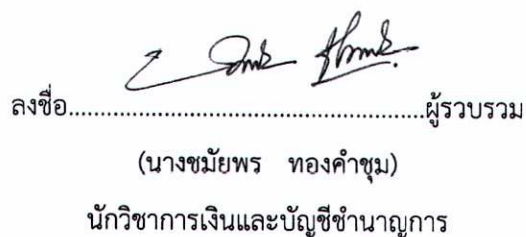 ลงชื่อ................................................ผู้รวบรวม
(นางชมัยพร ทองคำชุม)
นักวิชาการเงินและบัญชีชำนาญการ